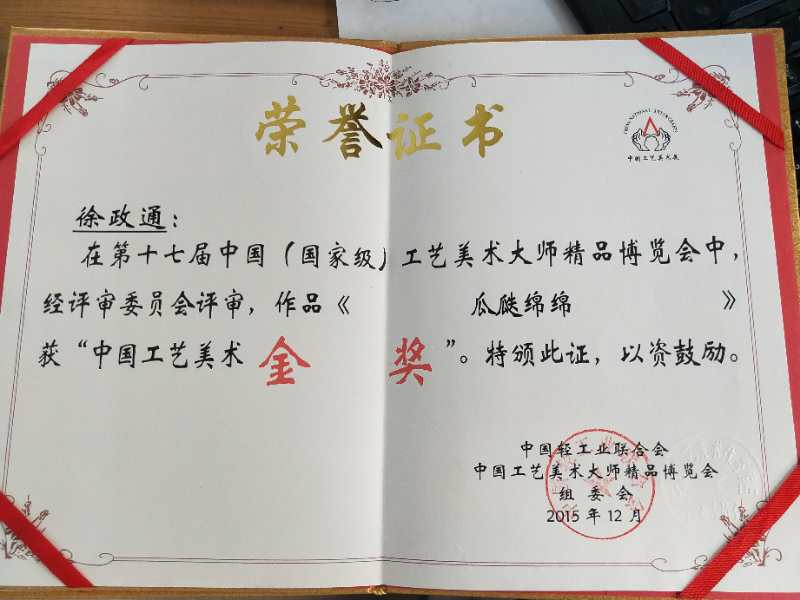 荣誉证书
中国工艺美术展
徐政通：
在第十七届中国（国家级）工艺美术大师精品博览会中，
经评审委员会评审，作品《 瓜瓞绵绵 》
获“中国工艺美术 金 奖”。特颁此证，以资鼓励。
中国轻工业联合会
中国工艺美术大师精品博览会
组委会
2015年12月